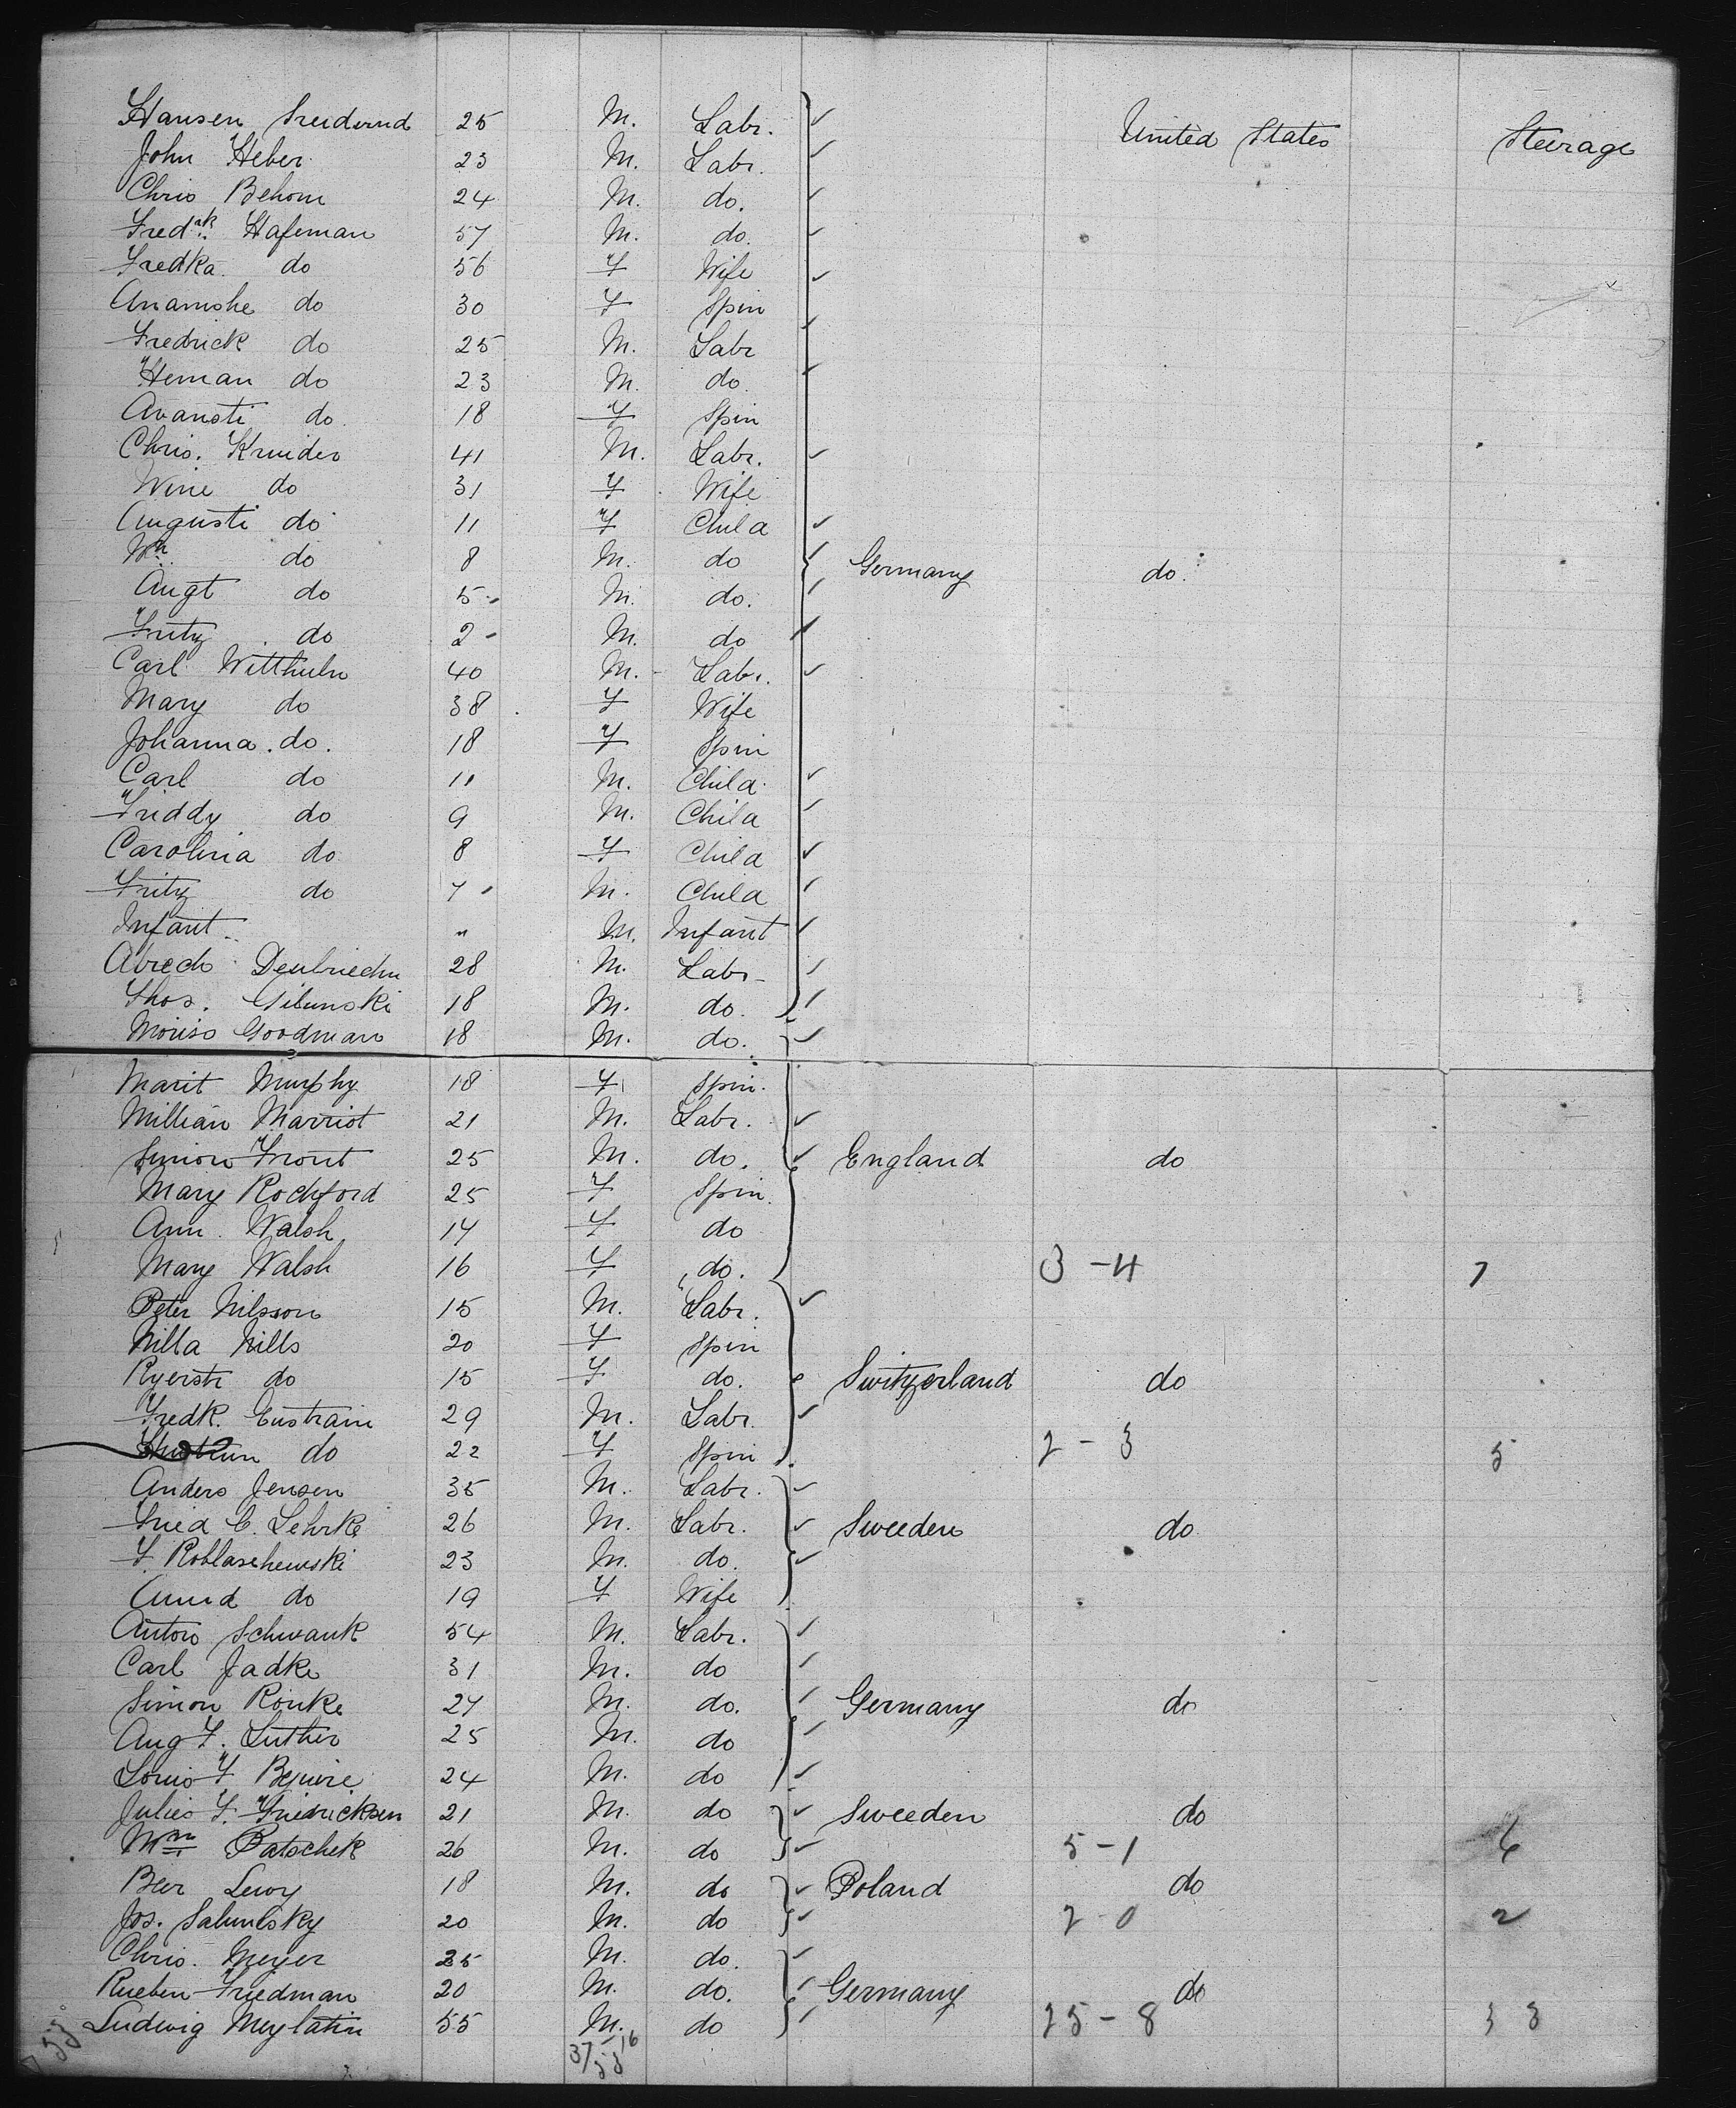 Hansen 25 M. Labr. United States Steerage
John Heber 23 M. Labr.
Chris Behom 24 M. do.
Fredrk Hafeman 57 M. do.
Fredka do 56 F Wife
Anamshe do 30 F Spin
Fredrick do 25 M. Labr
Heman do 23 M. do.
Avansti do. 18 F Spin
Chris. Kruider 41 M. Labr.
Wine do 31 F Wife
Augusti do 11 F Child
Wm do 8 M. do Germany do.
Augt do 5 M. do.
Fritz do 2 M. do
Carl Witthuhn 40 M. Labr.
Mary do 38 F Wife
Johanna. do. 18 F Spin
Carl do 11 M. Child
Friddy do 9 M. Child
Carolina do 8 F Child
Fritz do 7 M. Child
Infant " M. Infant
28 M. Labr
Thos. Gilunski 18 M. do.
Moriss Goodman 18 M. do.
Marit Murphy 18 F Spin.
Millian Marriot 21 M. Labr.
Simion Front 25 M. do. England do
Mary Rochford 25 F Spin.
Ann. Walsh 14 F do
Mary Walsh 16 F do. 3-4 7
Peter Nilsson 15 M. Labr.
Nilla Nills 20 F Spin
Ryerstr do 15 F do. Switzerland do
Fredk. Enstrain 29 M. Labr.
do 22 F Spin 2-3 5
Anders Jensen 35 M. Labr.
Fried C. Lehrke 26 M. Labr. Sweeden do
F. Roblaschewski 23 M. do.
do 19 F Wife
Anton Schwank 54 M. Labr.
Carl Jadke 31 M. do
Simon Rouke 27 M. do. Germany do
Aug F. Luther 25 M. do
Louis F 24 M. do
Julies F. Friedricksen 21 M. do Sweeden do
Wm Patschek 26 M. do 5-1 6
Beer Lewy 18 M. do Poland do
Jos. Salunlsky 20 M. do 2-0 2
Chris. Meyer 25 M. do.
Rueben Friedman 20 M. do. Germany do
Ludwig Meylatin 55 M. do 25-8 33
37/16
53